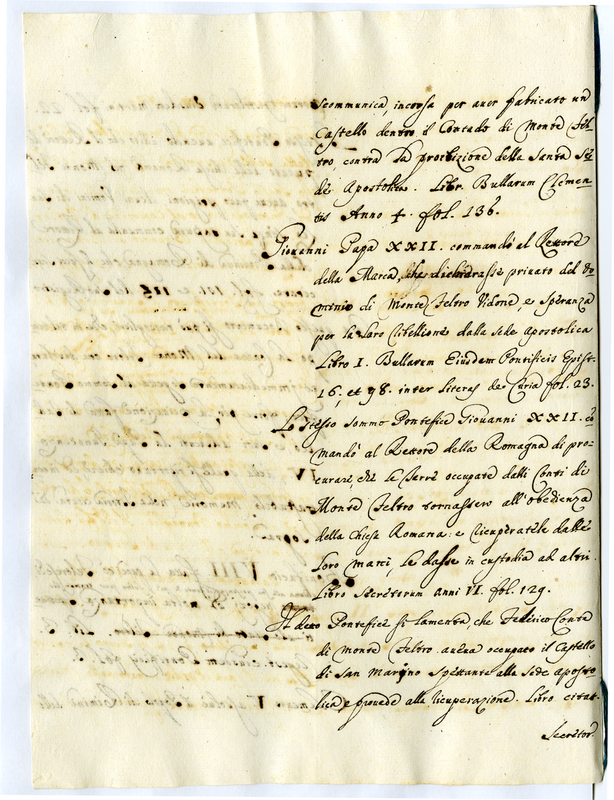 scommunica, incorsa per auer fabricato un
Castello dentro il Contado di Monte Fel-
tro, contra la proibizione della Santa Se-
de Apostolica. Libr. Bullarum Clemen-
tis Anno fol. 136.
Giouanni Papa XXII. commandò al Rettore
della Marca, che dichiarasse priuato del Do-
minio di Monte Feltro Vidone, e Speranza
per la loro ribellione dalla sede Apostolica
Libro I. Bullarum Eiusdem Pontificis Epist.
16, et 98. inter literas de Curia fol. 23.
Lo stesso sommo Pontefice Giouanni XXII. co-
mandò al Rettore della Romagna di pro-
curare, che le Terre occupate dalli Conti di
Monte Feltro tornassero all'obedienza
della Chiesa Romana: e ricuperatele dalle
loro mani, le dasse in custodia ad altri.
Libro Secretorum anni VI. fol. 129.
Il detto Pontefice si lamenta, che Federico Conte
di Monte Feltro aueua occupato il Castello
di San Marino spettante alla Sede Aposto-
lica, e prouede alla ricuperazione. Libro citat.
Secretor.